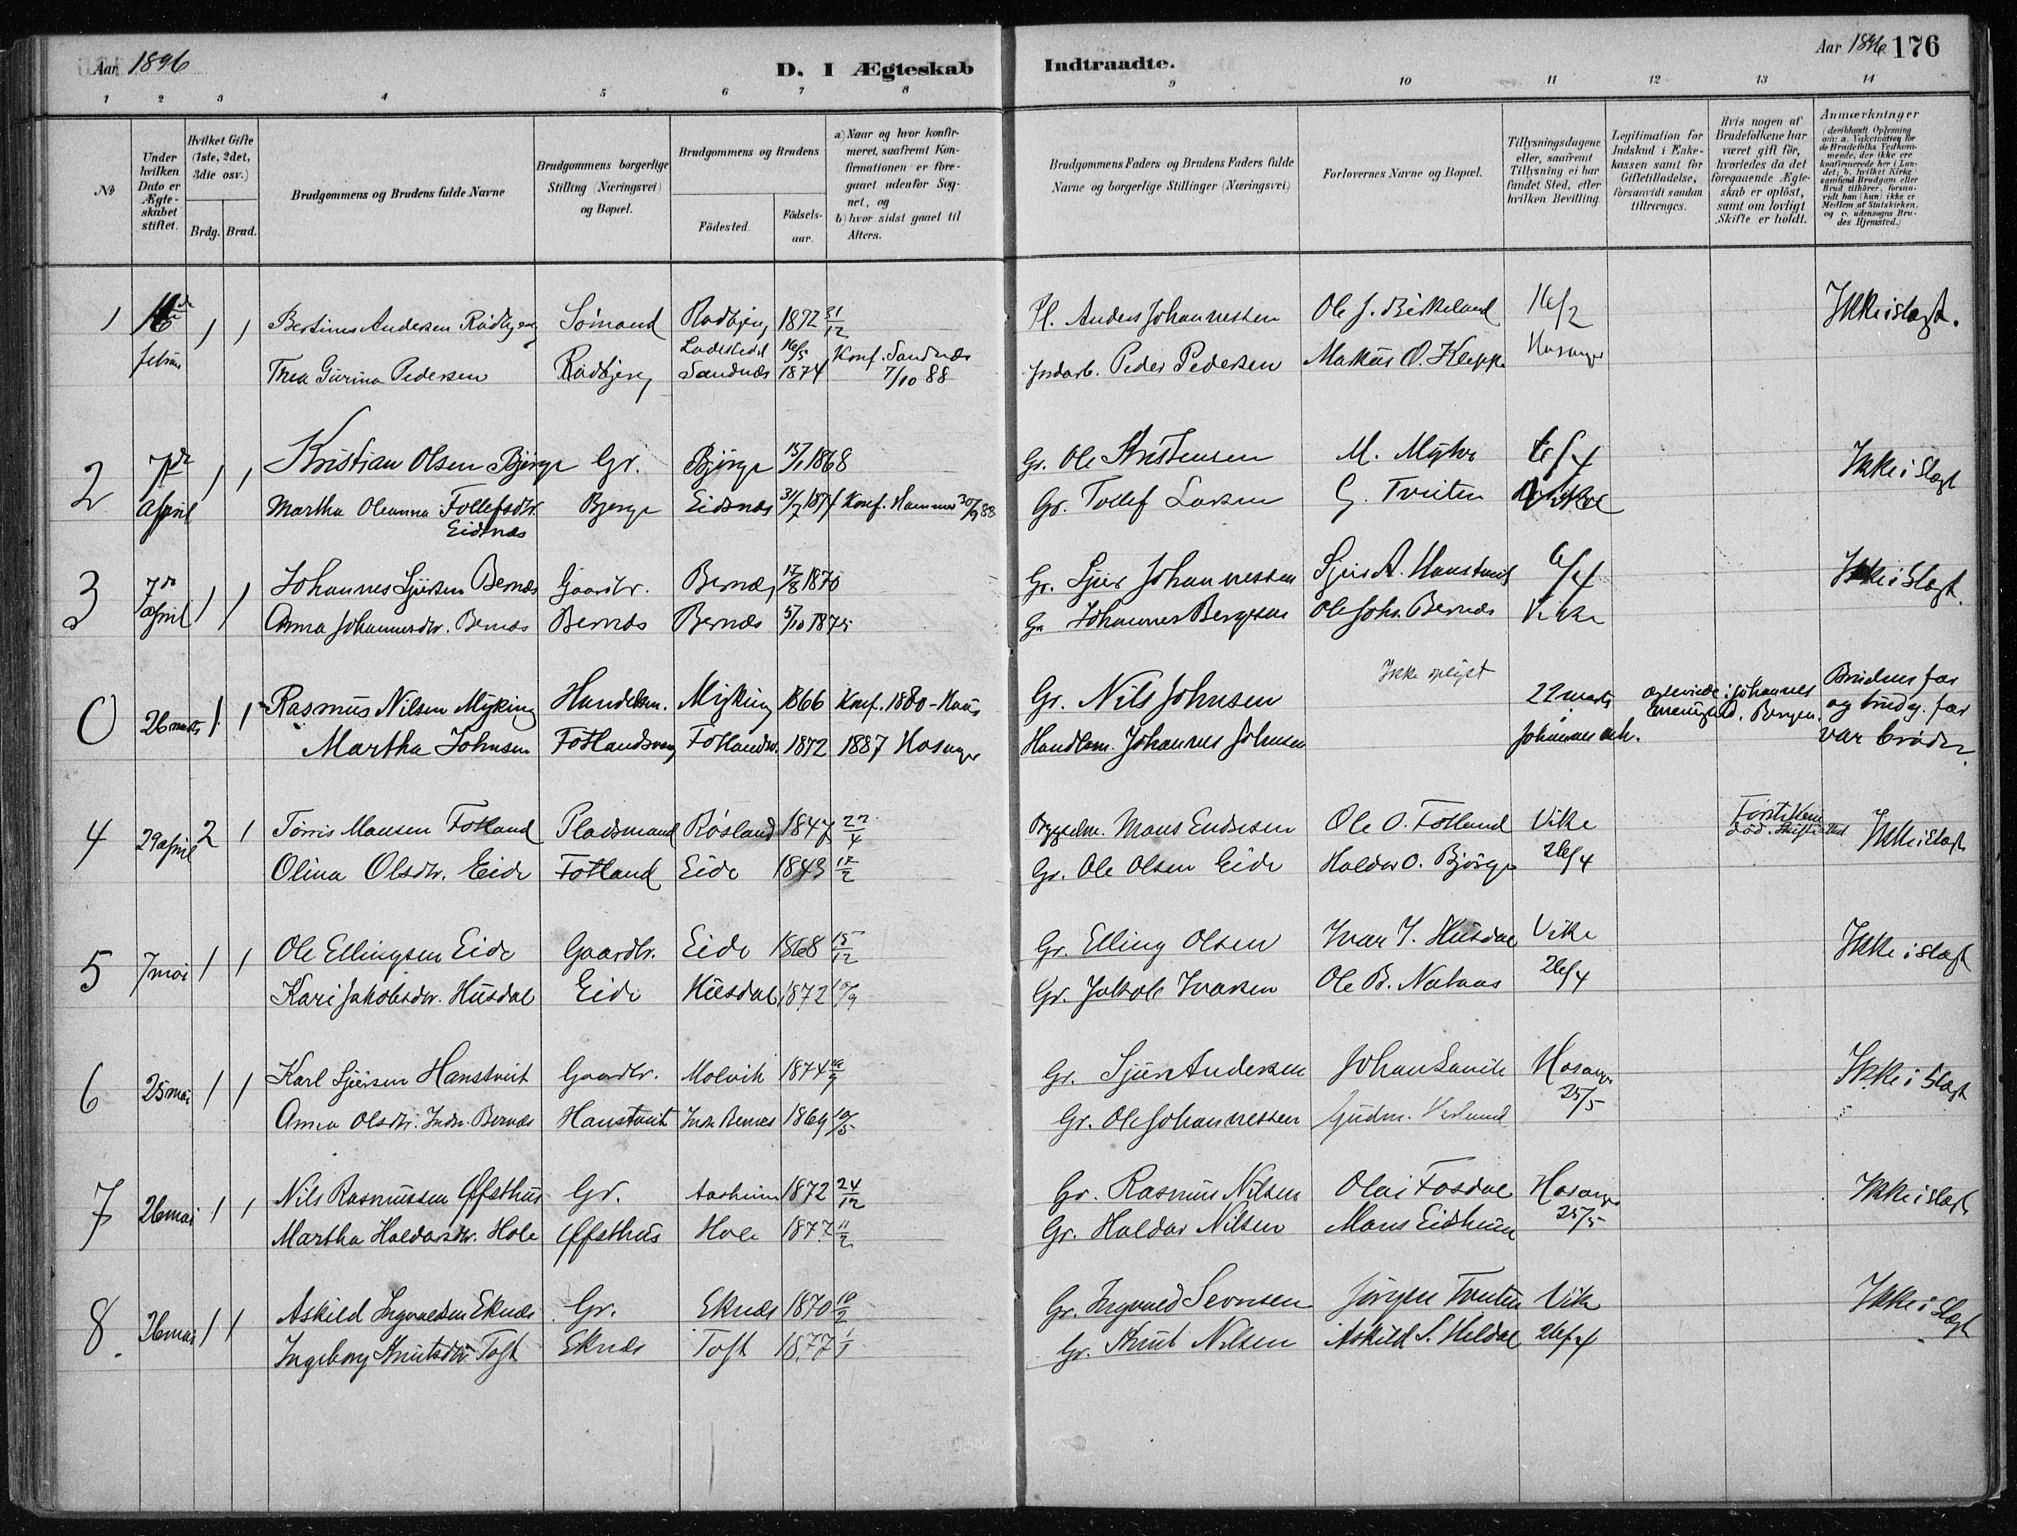 Aar 1896
D. I Ægteskab Indtraadte.
Aar 1896 176
1 2 3 4 5 6 7 8 9 10 11 12 13 14
No
Under hvilken Dato er Ægteskabet stiftet.
Hvilket Gifte (1ste, 2det, 3die osv.)
Brdg. Brud.
Brudgommens og Brudens fulde Navne
Brudgommens borgerlige Stilling (Næringsvei) og Bopæl.
Brudgommens og Brudens
Födested.
Födsels-aar.
a) Naar og hvor konfirmeret, saafremt Konfirmationen er foregaaet udenfor Sognet, og
b) hvor sidst gaaet til Alters.
Brudgommens Faders og Brudens Faders fulde Navne og borgerlige Stillinger (Næringsvei)
Forlovernes Navne og Bopæl.
Tillysningsdagene eller, saafremt Tillysning ei har fundet Sted, efter hvilken Bevilling.
Legitimation for Indskud i Enkekassen samt for Giftetilladelse, forsaavidt saadan tiltrænges.
Hvis nogen af Brudefolkene har været gift för, hvorledes da det foregaaende Ægteskab er oplöst, samt om lovligt Skifte er holdt.
Anmærkninger
(deriblandt Oplysning om: a. Vakcination for de Brudefolks Vedkommende, der ikke ere konfirmerede her i Landet; b. hvilket Kirkesamfund Brudgom eller Brud tilhörer, forsaavidt han (hun) ikke er Medlem af Statskirken, og c. udensogns Brudes Hjemsted.)
1 februar 1 1 Bertinus Andersen Rödbjerg Sömand Radbjerg 1872 31/12 Pl. Anders Johannessen Ole J. Birkeland 16/2 Ikke i Slægt.
Thea Gurina Pedersen Rödbjerg Sandnæs 16/5 1874 Konf. Sandnæs 7/10 88 Jordarb. Peder Pedersen Markus O. Kleppe Hosanger
2 7de 1 1 Kristian Olsen Bjørge Gr. Bjørge 15/1 1868 Gr. Ole Kristensen M. Myhre 6/4 Ikke i Slægt
april Martha Oleanna Tollefsdtr. Eidsnæs Bjørge Eidsnæs 31/7 1874 Konf. Hammer 30/9 88 Gr. Tollef Larsen G. Tveiten
3 7de 1 1 Johannes Sjursen Bernæs Gaardbr. Bernæs 17/8 1870 Gr. Sjur Johannessen Sjur A. Hanstveit 6/4 Ikke i Slægt.
april Anna Johannesdtr. Bernæs Bernæs Bernæs 5/10 1875 Gr. Johannes Bergesen Ole Johs. Bernæs Vike
0 26 marts 1 1 Rasmus Nilsen Myking Handelsm. Myking 1866 Konf. 1880 - Haus Gr. Nils Johnsen Ikke oplyst 22 marts Brudens far og brudg. far var brødre.
Martha Johnsen Fotlandsvaag Fotlandsv. 1872 1887 Hosanger Handlem. Johannes Johnsen Johannes menighed, Bergen.
4 29 april 2 1 Törris Monsen Fotland Pladsmand Røsland 1847 22/4 Mons Endresen Ole O. Fotland Vike Ikke i Slægt
Olina Olsdtr. Eide Fotland Eide 1843 17/2 Gr. Ole Olsen Eide Haldor O. Bjørge 26/4
5 7 mai 1 1 Ole Ellingsen Eide Gaardbr. Eide 1868 15/12 Gr. Elling Olsen Ivar J. Husdal Vike Ikke i Slægt
Kari Jakobsdtr. Husdal Eide Husdal 1872 10/9 Gr. Jakob Ivarsen Ole B. Nataas 26/4
6 25 mai 1 1 Karl Sjursen Hanstveit Gaardbr. Molvik 1874 Gr. Sjur Andersen Johan Hosanger Ikke i Slægt
Anna Olsdtr. Indr. Bernæs Hanstveit Indr. Bernæs 1869 10/5 Gr. Ole Johannessen Gudm. 25/5
7 26 mai 1 1 Nils Rasmussen Øfsthus Gr. Aasheim 1872 24/12 Gr. Rasmus Nilsen Olai Fosdal Hosanger Ikke i Slægt
Martha Haldorsdtr. Hole Øfsthus Hole 1877 11/2 Gr. Haldor Nilsen Mons Eidheim 25/5
8 26 mai 1 1 Askild Ingvaldsen Eknæs Gr. Eknæs 1870 10/2 Gr. Ingvald Sevrsen Jörgen Tveiten Vike Ikke i Slægt
Ingeborg Knutsdtr. Toft Eknæs Toft 1877 1/1 Gr. Knut Nilsen Askild S. Heldal 26/4